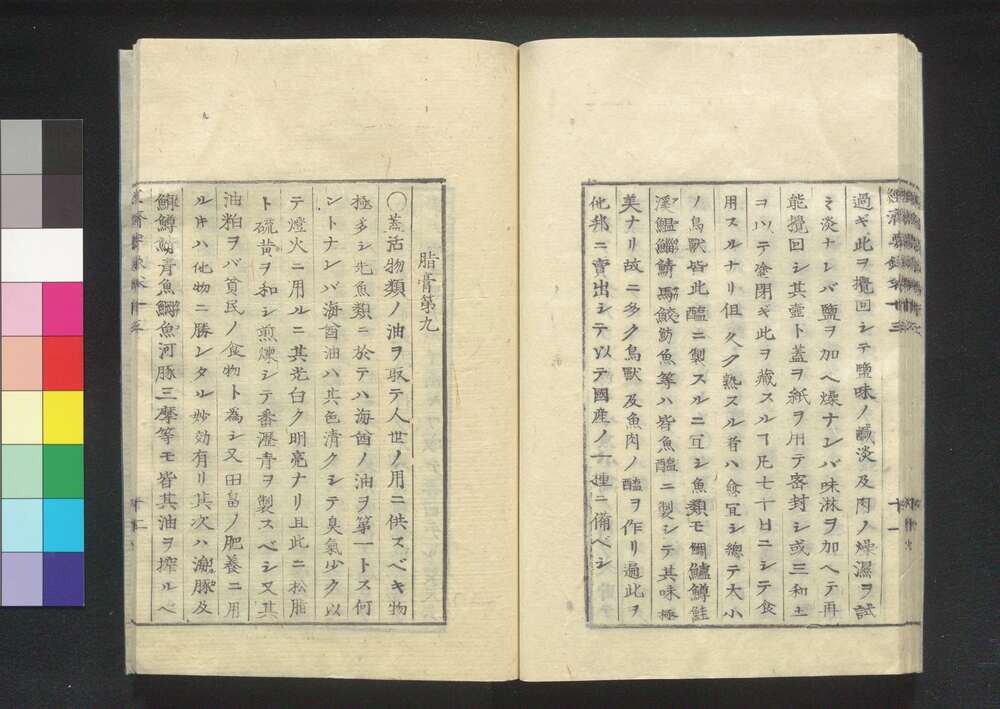 過ギ此ヲ攪回シテ鹽味ノ鹹淡及肉ノ燥濕ヲ試
ミ淡ナレバ鹽ヲ加ヘ燥ナレバ味淋ヲ加ヘテ再
能攪回シ其壷ト蓋ヲ紙ヲ用テ密封シ或三和土
ヲ以テ塗閉ギ此ヲ藏スルヿ凡七十日ニシテ食
用スルナリ但久ク熟スル者ハ愈宜シ總テ大小
ノ鳥獸皆此醢ニ製スルニ宜シ魚類モ鯛鱸鱒鮭
鰮鰡鯖馬鮫魴魚等ハ皆魚醢ニ製シテ其味極
美ナリ故ニ多ク鳥獸及魚肉ノ醢ヲ作リ過此ヲ
他邦ニ賣出シテ以テ國産ノ一種ニ備ベシ
脂膏第九
〇蒸活物類ノ油ヲ取テ人世ノ用ニ供スベキ物
極多シ先魚類ニ於テハ海鰌ノ油ヲ第一トス何
ントナレバ海鰌油ハ其色清クシテ臭氣少ク以
テ燈火ニ用ルニ其光白ク明亮ナリ且此ニ松脂
ト硫黄ヲ和シ煎煉シテ番瀝青ヲ製スベシ又其
油粕ヲバ貧民ノ食物ト為シ又田畠ノ肥養ニ用
ルキハ他物ニ勝レタル妙効有リ其次ハ海豚及
鱒青魚魚河豚三摩等モ皆其油ヲ搾ルベ